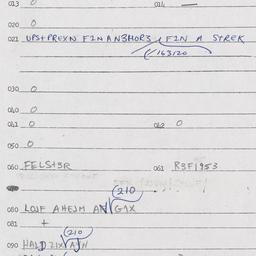 013 0 014 —
020 0
021 UPS+PREXN F2N AN3HOR3 F2N A STREK
163120
030 0
040 0
041 0 042 0
050 0
060 FELS+3R 061 R3F1953
210
080 LOJF AHEJM AN G1X
081 +
210
090 HALD21X AJN